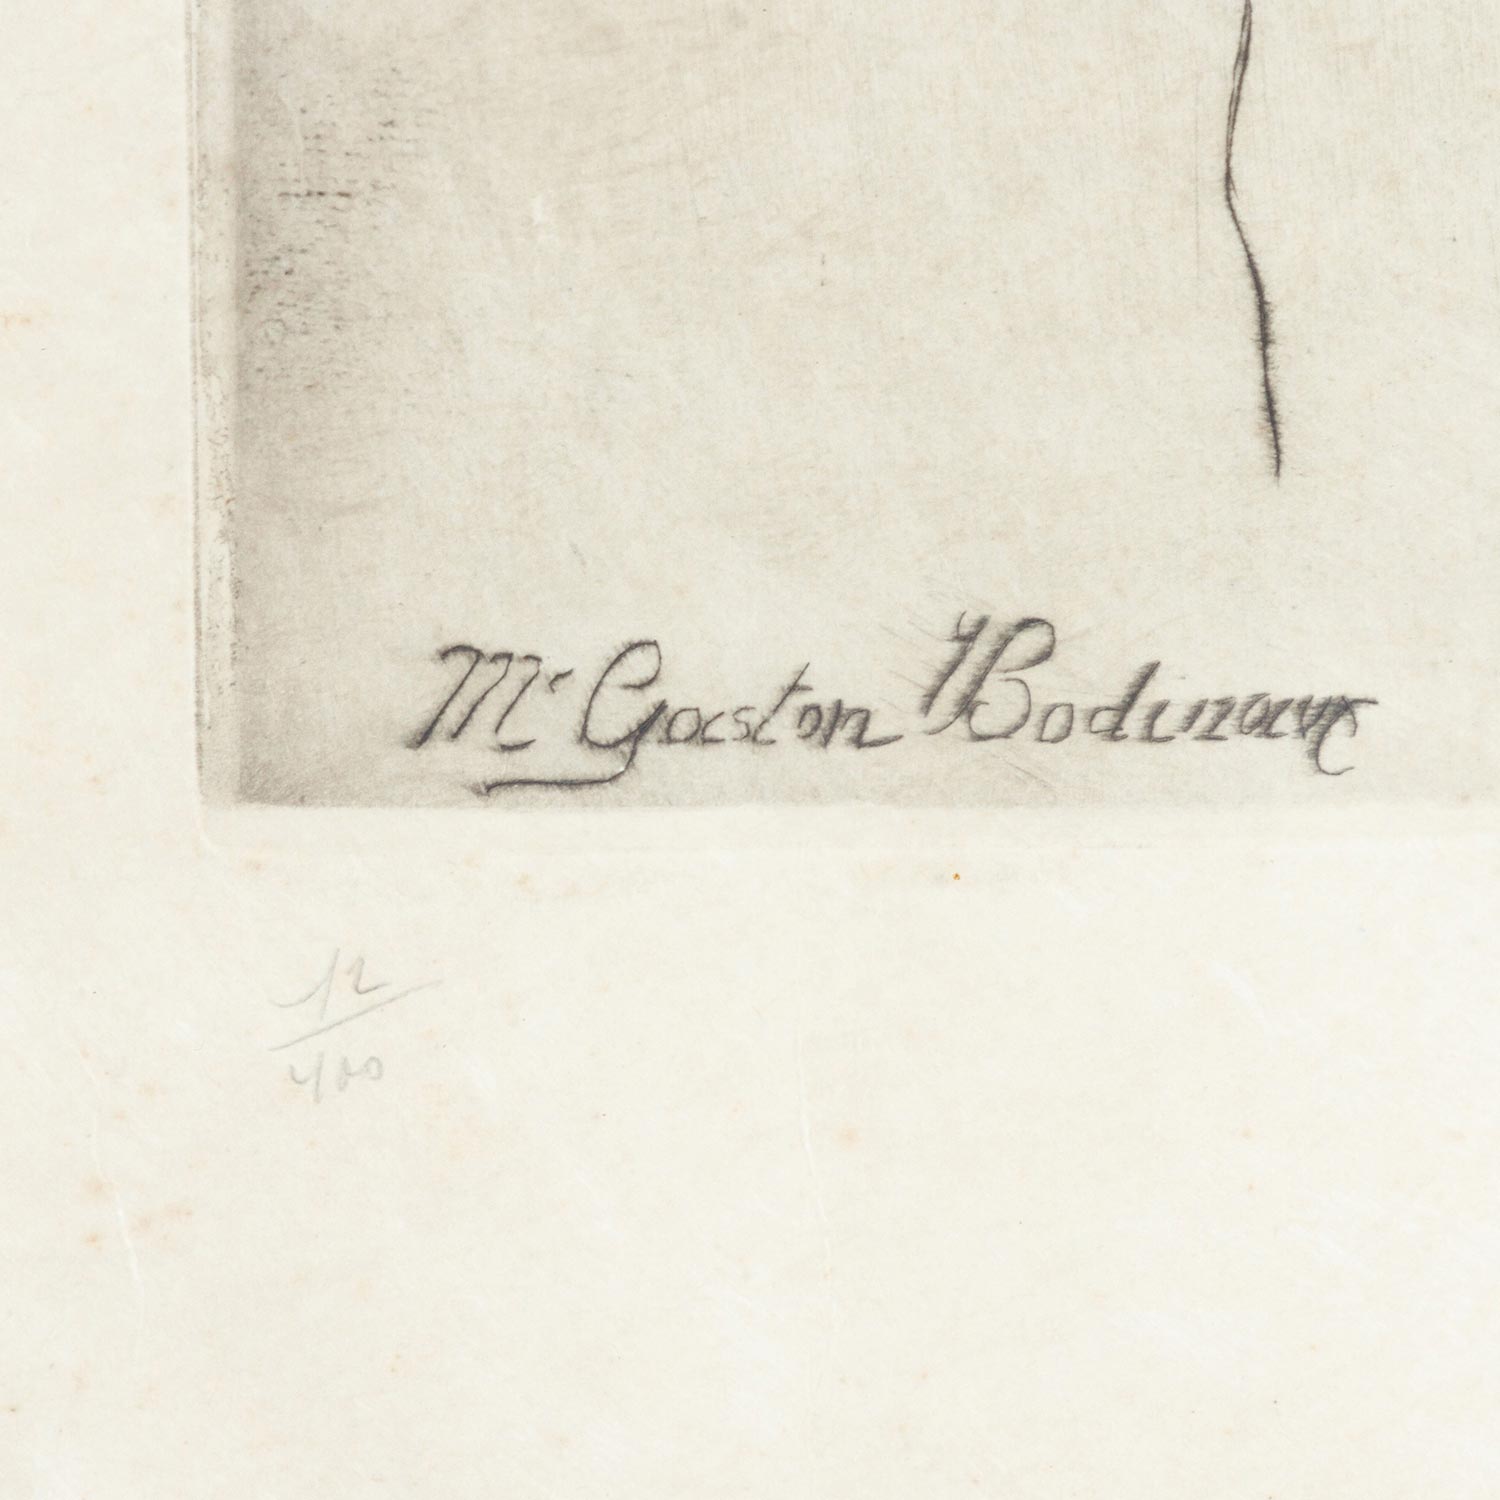 Mr Gaston Bodinaux
12
400